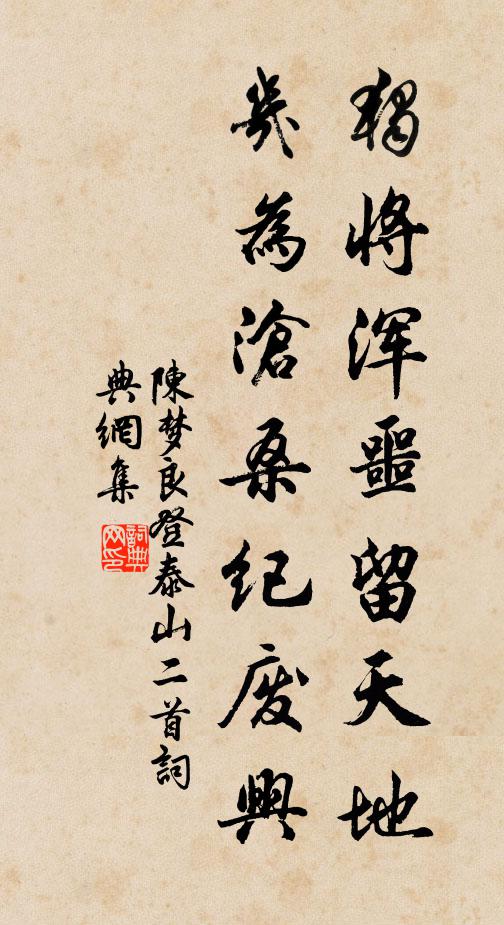 独将浑噩留天地
几為滄桑纪废興
陳梦良登泰山二首詞
典網集
詞典网印